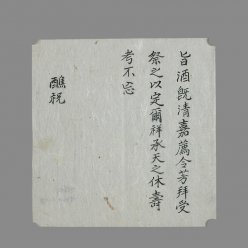 旨酒既清嘉薦令芳拜受
祭之以定爾祥承天之休壽
考不忘
醮祝